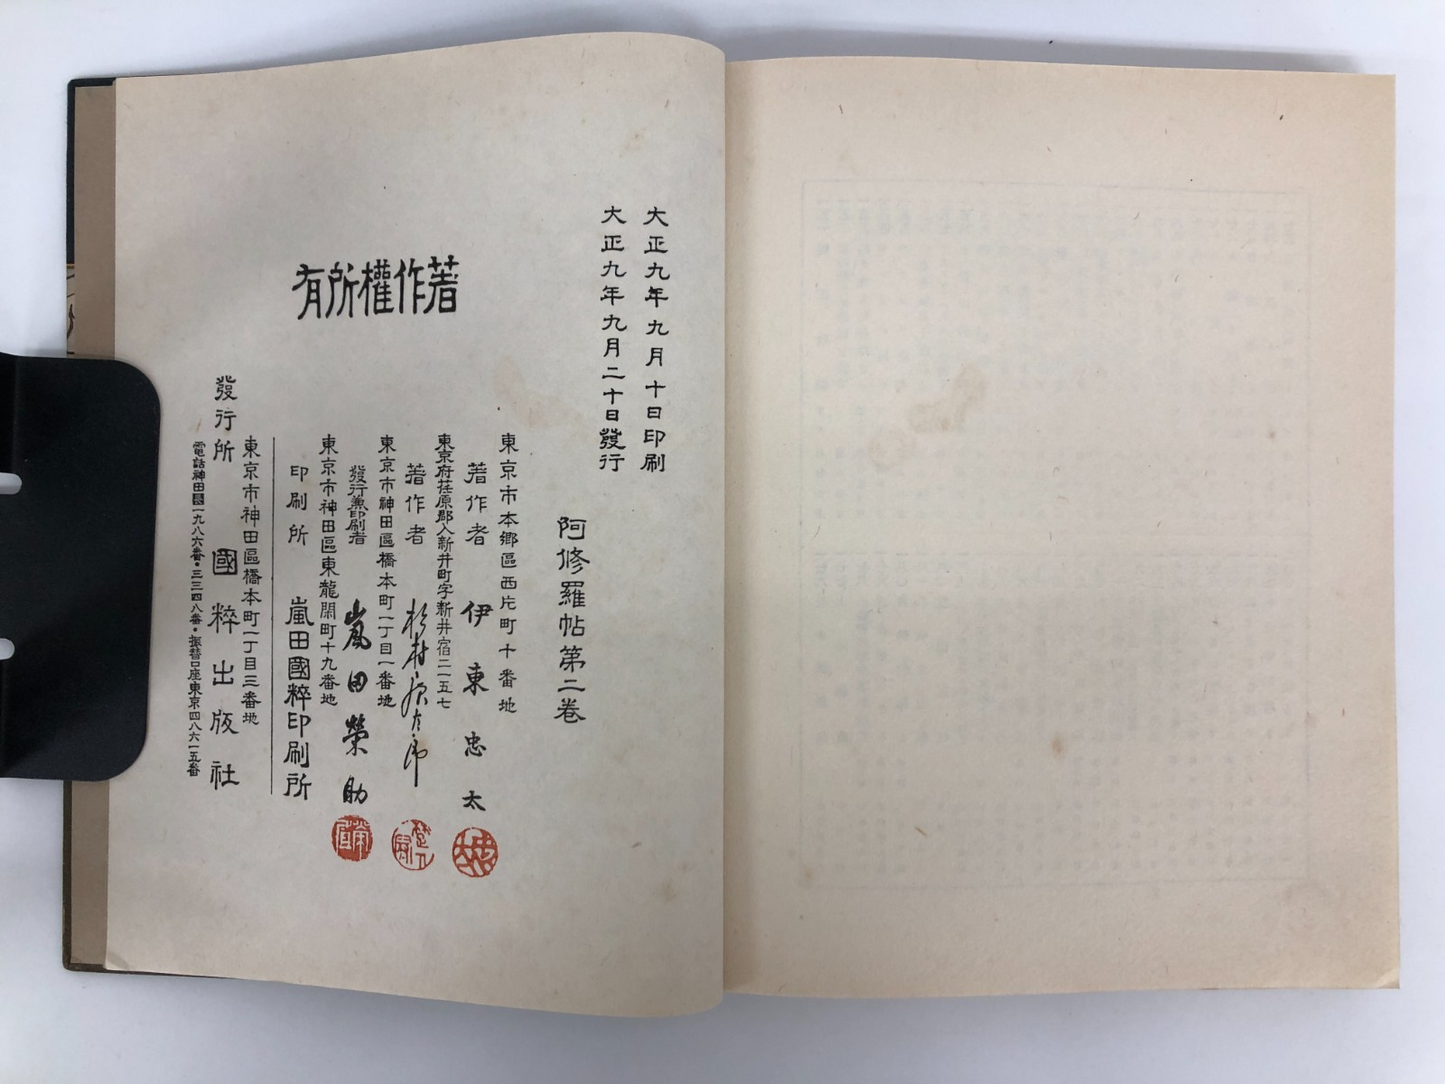 大正九年九月十日印刷
大正九年九月二十日發行
著作權所有
阿修羅帖第二卷
東京市本鄉區西片町十番地
著作者 伊東忠太
東京府荏原郡入新井町字新井宿二一五七
著作者 杉村廣太郎
東京市神田區橋本町一丁目一番地
發行兼印刷者 嵐田榮助
東京市神田區東龍閑町十九番地
印刷所 嵐田國粹印刷所
東京市神田區橋本町一丁目三番地
發行所 國粹出版社
電話神田一九八六番・三三四八番・振替口座東京四八六一五番